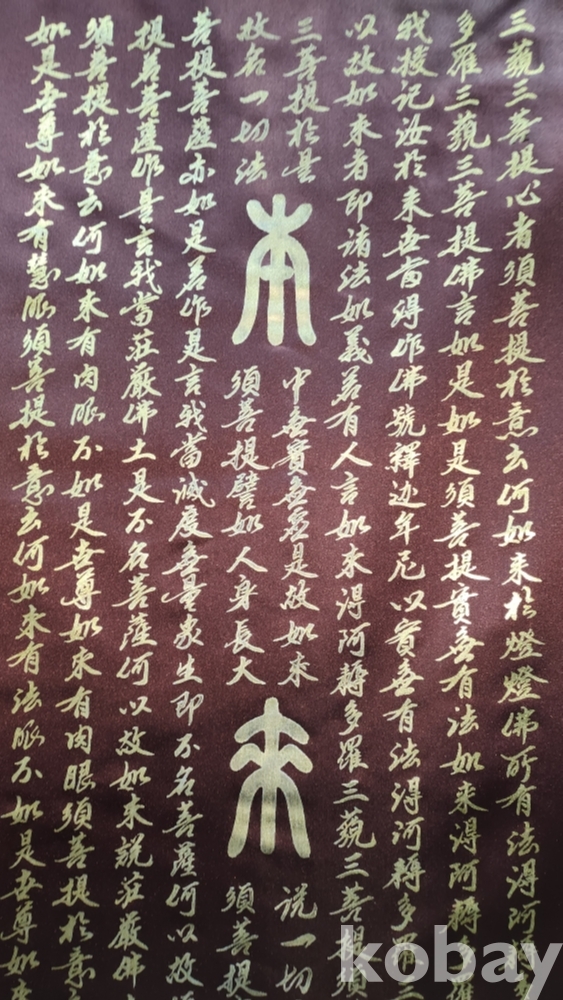 三藐三菩提心者須菩提於意云何如来於燈燈佛所有法得阿
多羅三藐三菩提佛言如是如是須菩提實無有法如来得阿耨多羅
我授記汝於来世當得作佛號釋迦牟尼以實無有法得阿耨多羅三
以故如来者即諸法如義若有人言如来得阿耨多羅三藐三菩提須
三菩提於是
中無實無虛是故如来
說一切
故名一切法
須菩提譬如人身長大
須菩提
本
来
菩提菩薩亦如是若作是言我當滅度無量衆生即不名菩薩何以故須
提菩薩作是言我當莊嚴佛土是不名菩薩何以故如来說莊嚴佛
須菩提於意云何如来有肉眼不如是世尊如来有肉眼須菩提於意
如是世尊如来有慧眼須菩提於意云何如来有法眼不如是世尊如
kobay